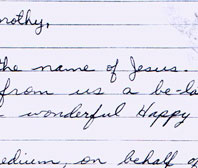 mothy,
the name of Jesus.
from us a be-la
wonderful Happy
edium, on behalf of